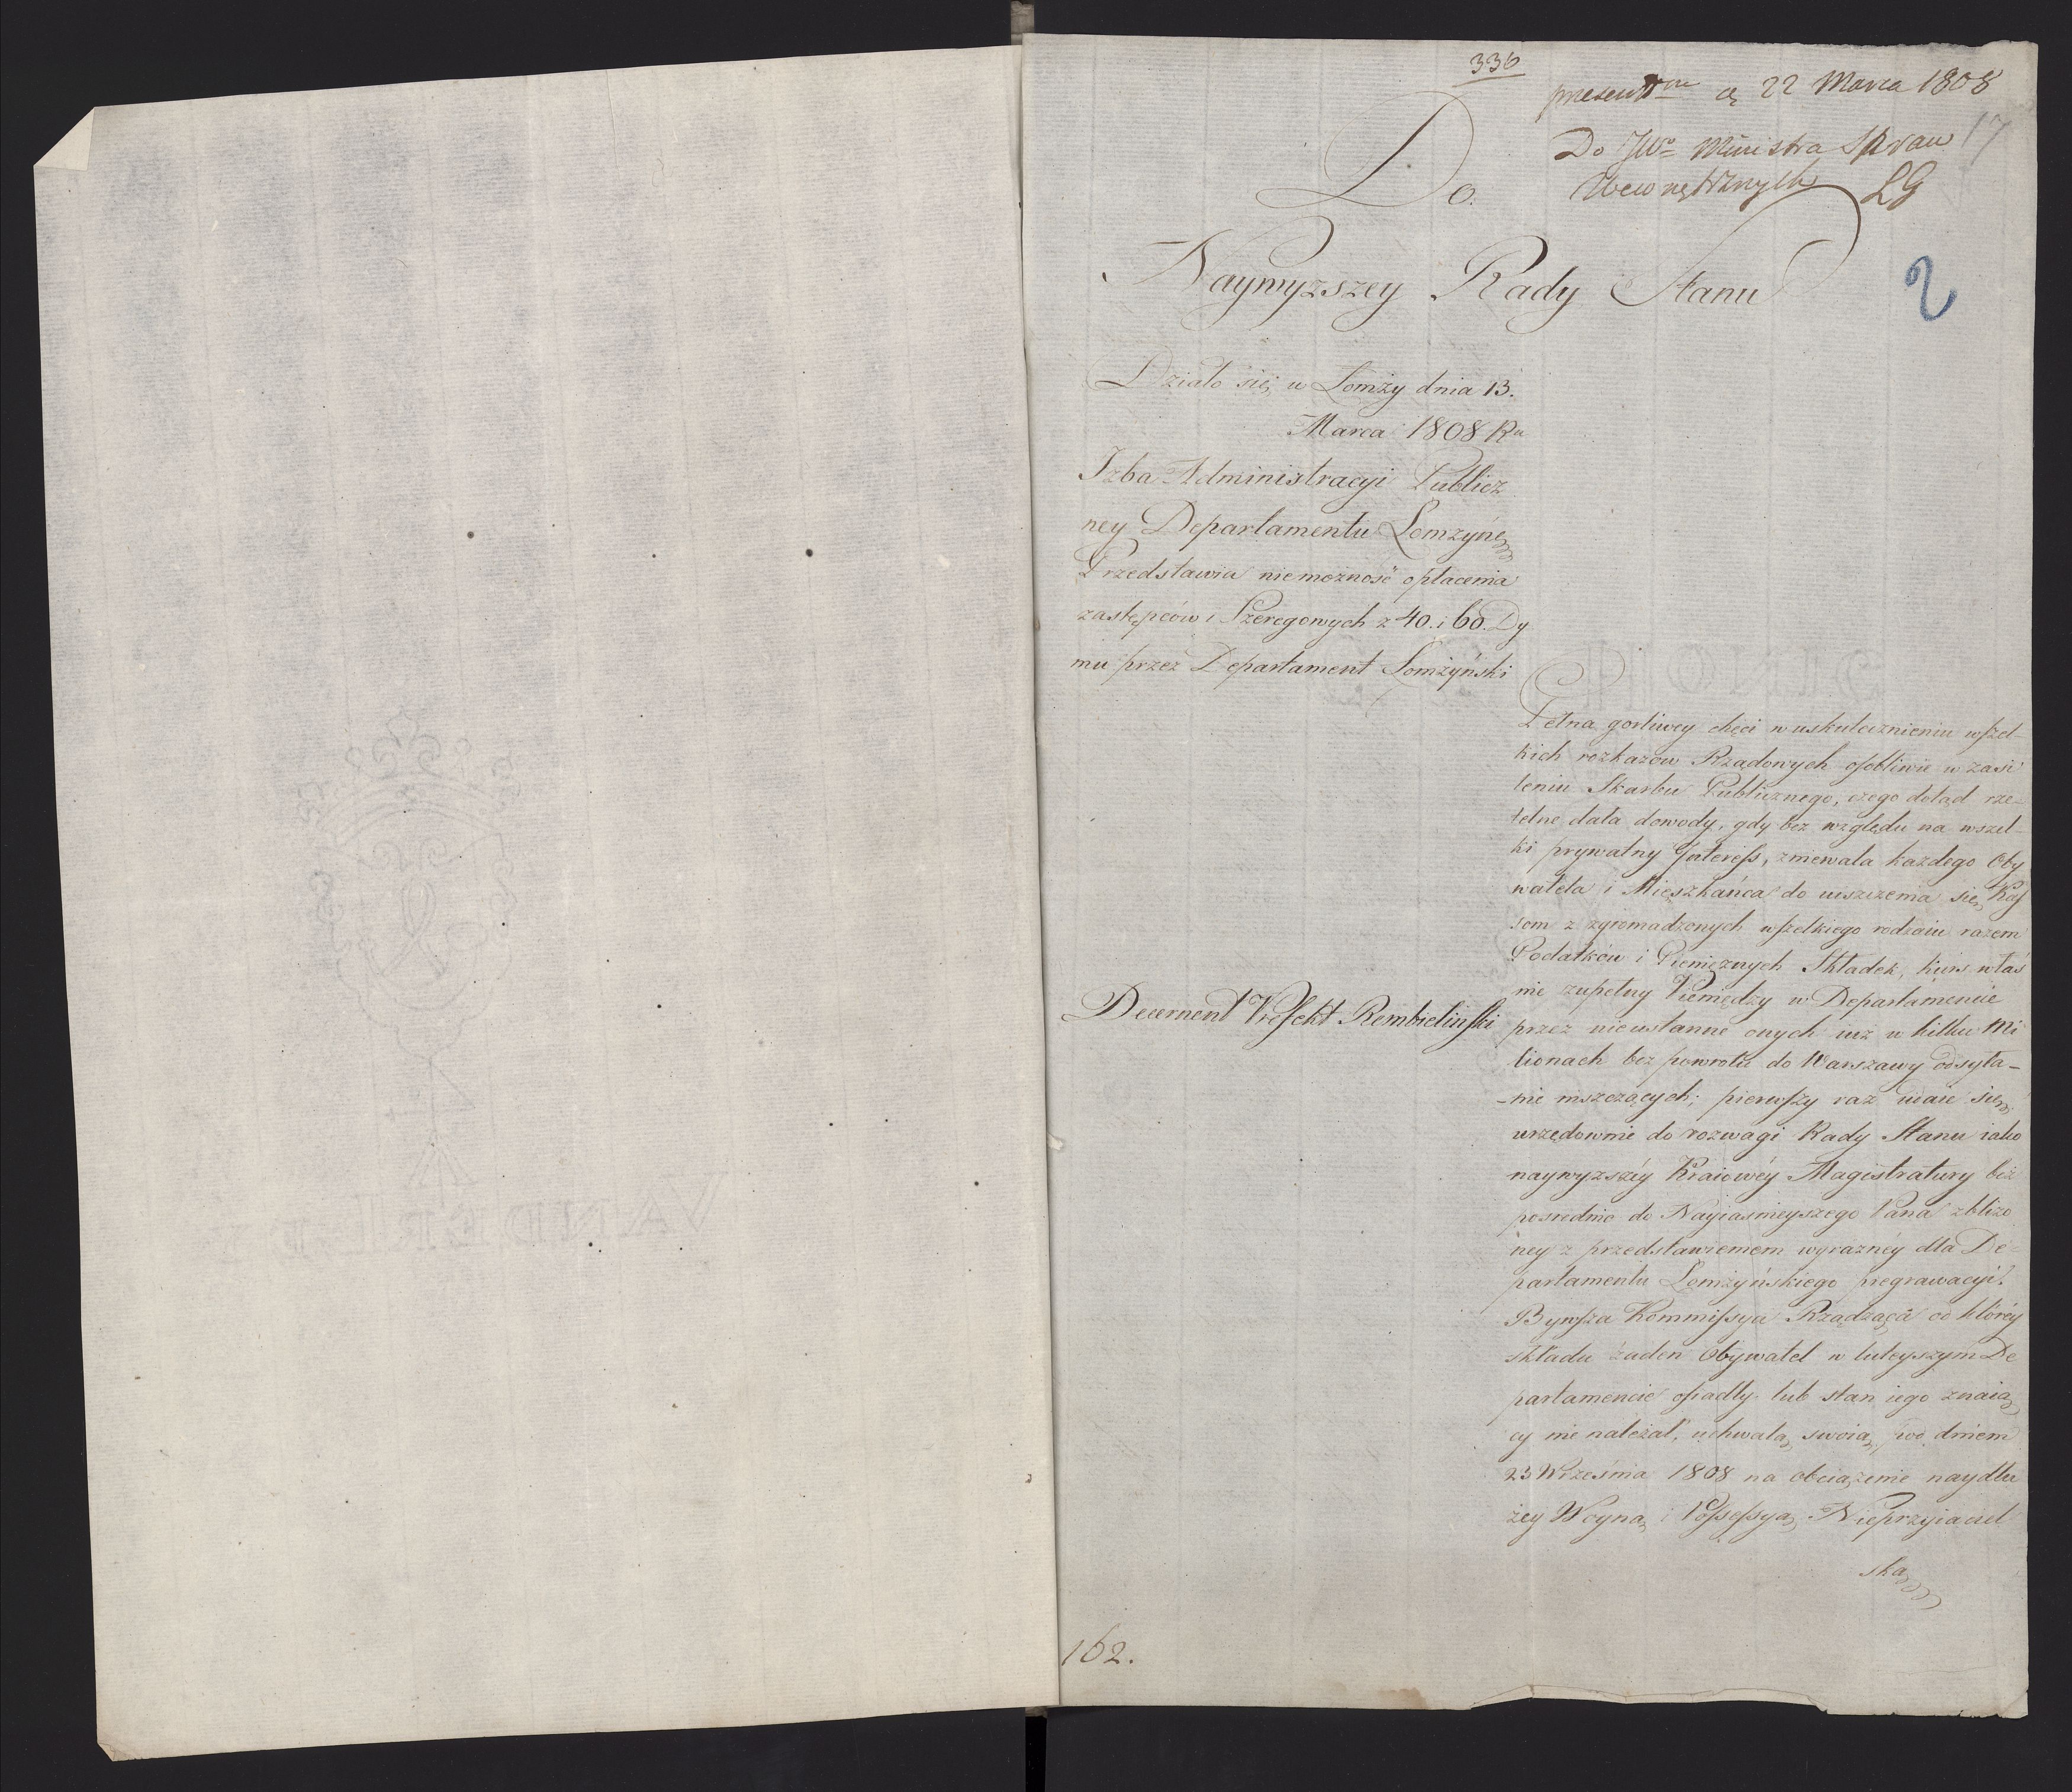 336
præsentm d 22 Marca 1808
17
Do JWo Ministra Spraw
Wewnętrznych LG
Do.
Naywyzszey Rady Stanu
2
Działo się w Łomży dnia 13.
Marca 1808 Ru
Izba Administracyi Publicz
ney Departamentu Łomzyńe
Przedstawia niemożność opłacenia
zastępców i Szeregowych z 40. i 60. Dy
mu przez Departament Łomżyński
Pełna gorliwey chęci w uskutecznieniu wszel-
kich rozkazow Rządowych osobliwie w zasi
leniu Skarbu Publicznego, czego dotąd rze-
telne dała dowody, gdy bez względu na wszel-
ki prywatny Interess, zniewala każdego Oby
watela i Mięszkańca do uiszczenia się Kas
som z zgromadzonych wszelkiego rodzaiu razem
Podatków i Pienięznych Składek, kurs właś
nie zupełny Pieniędzy w Departamencie
Decernent Prefekt Rembielinski
przez nieustanne onych iuż w kilku Mi
lionach bez powrotu do Warszawy odsyła-
-nie niszczących; pierwszy raz udaie się
urzędownie do rozwagi Rady Stanu iako
naywyzszéy Kraiowéy Magistratury bez
posrednie do Nayiasnieyszego Pana zblizo
ney z przedstawieniem wyraznéy dla De-
partamentu Łomżyńskiego pregrawacyi.
Bywsza Kommissya Rządzącą od któréy
składu żaden Obywatel w tuteyszym De
partamencie osiadły lub stan iego znaią
cy nie należał, uchwałą swoią pod dniem
23 Września 1808 na obciążenie naydłu
żey Woyną i Possessyą Nieprzyiaciel
ską
162.
VANDER L